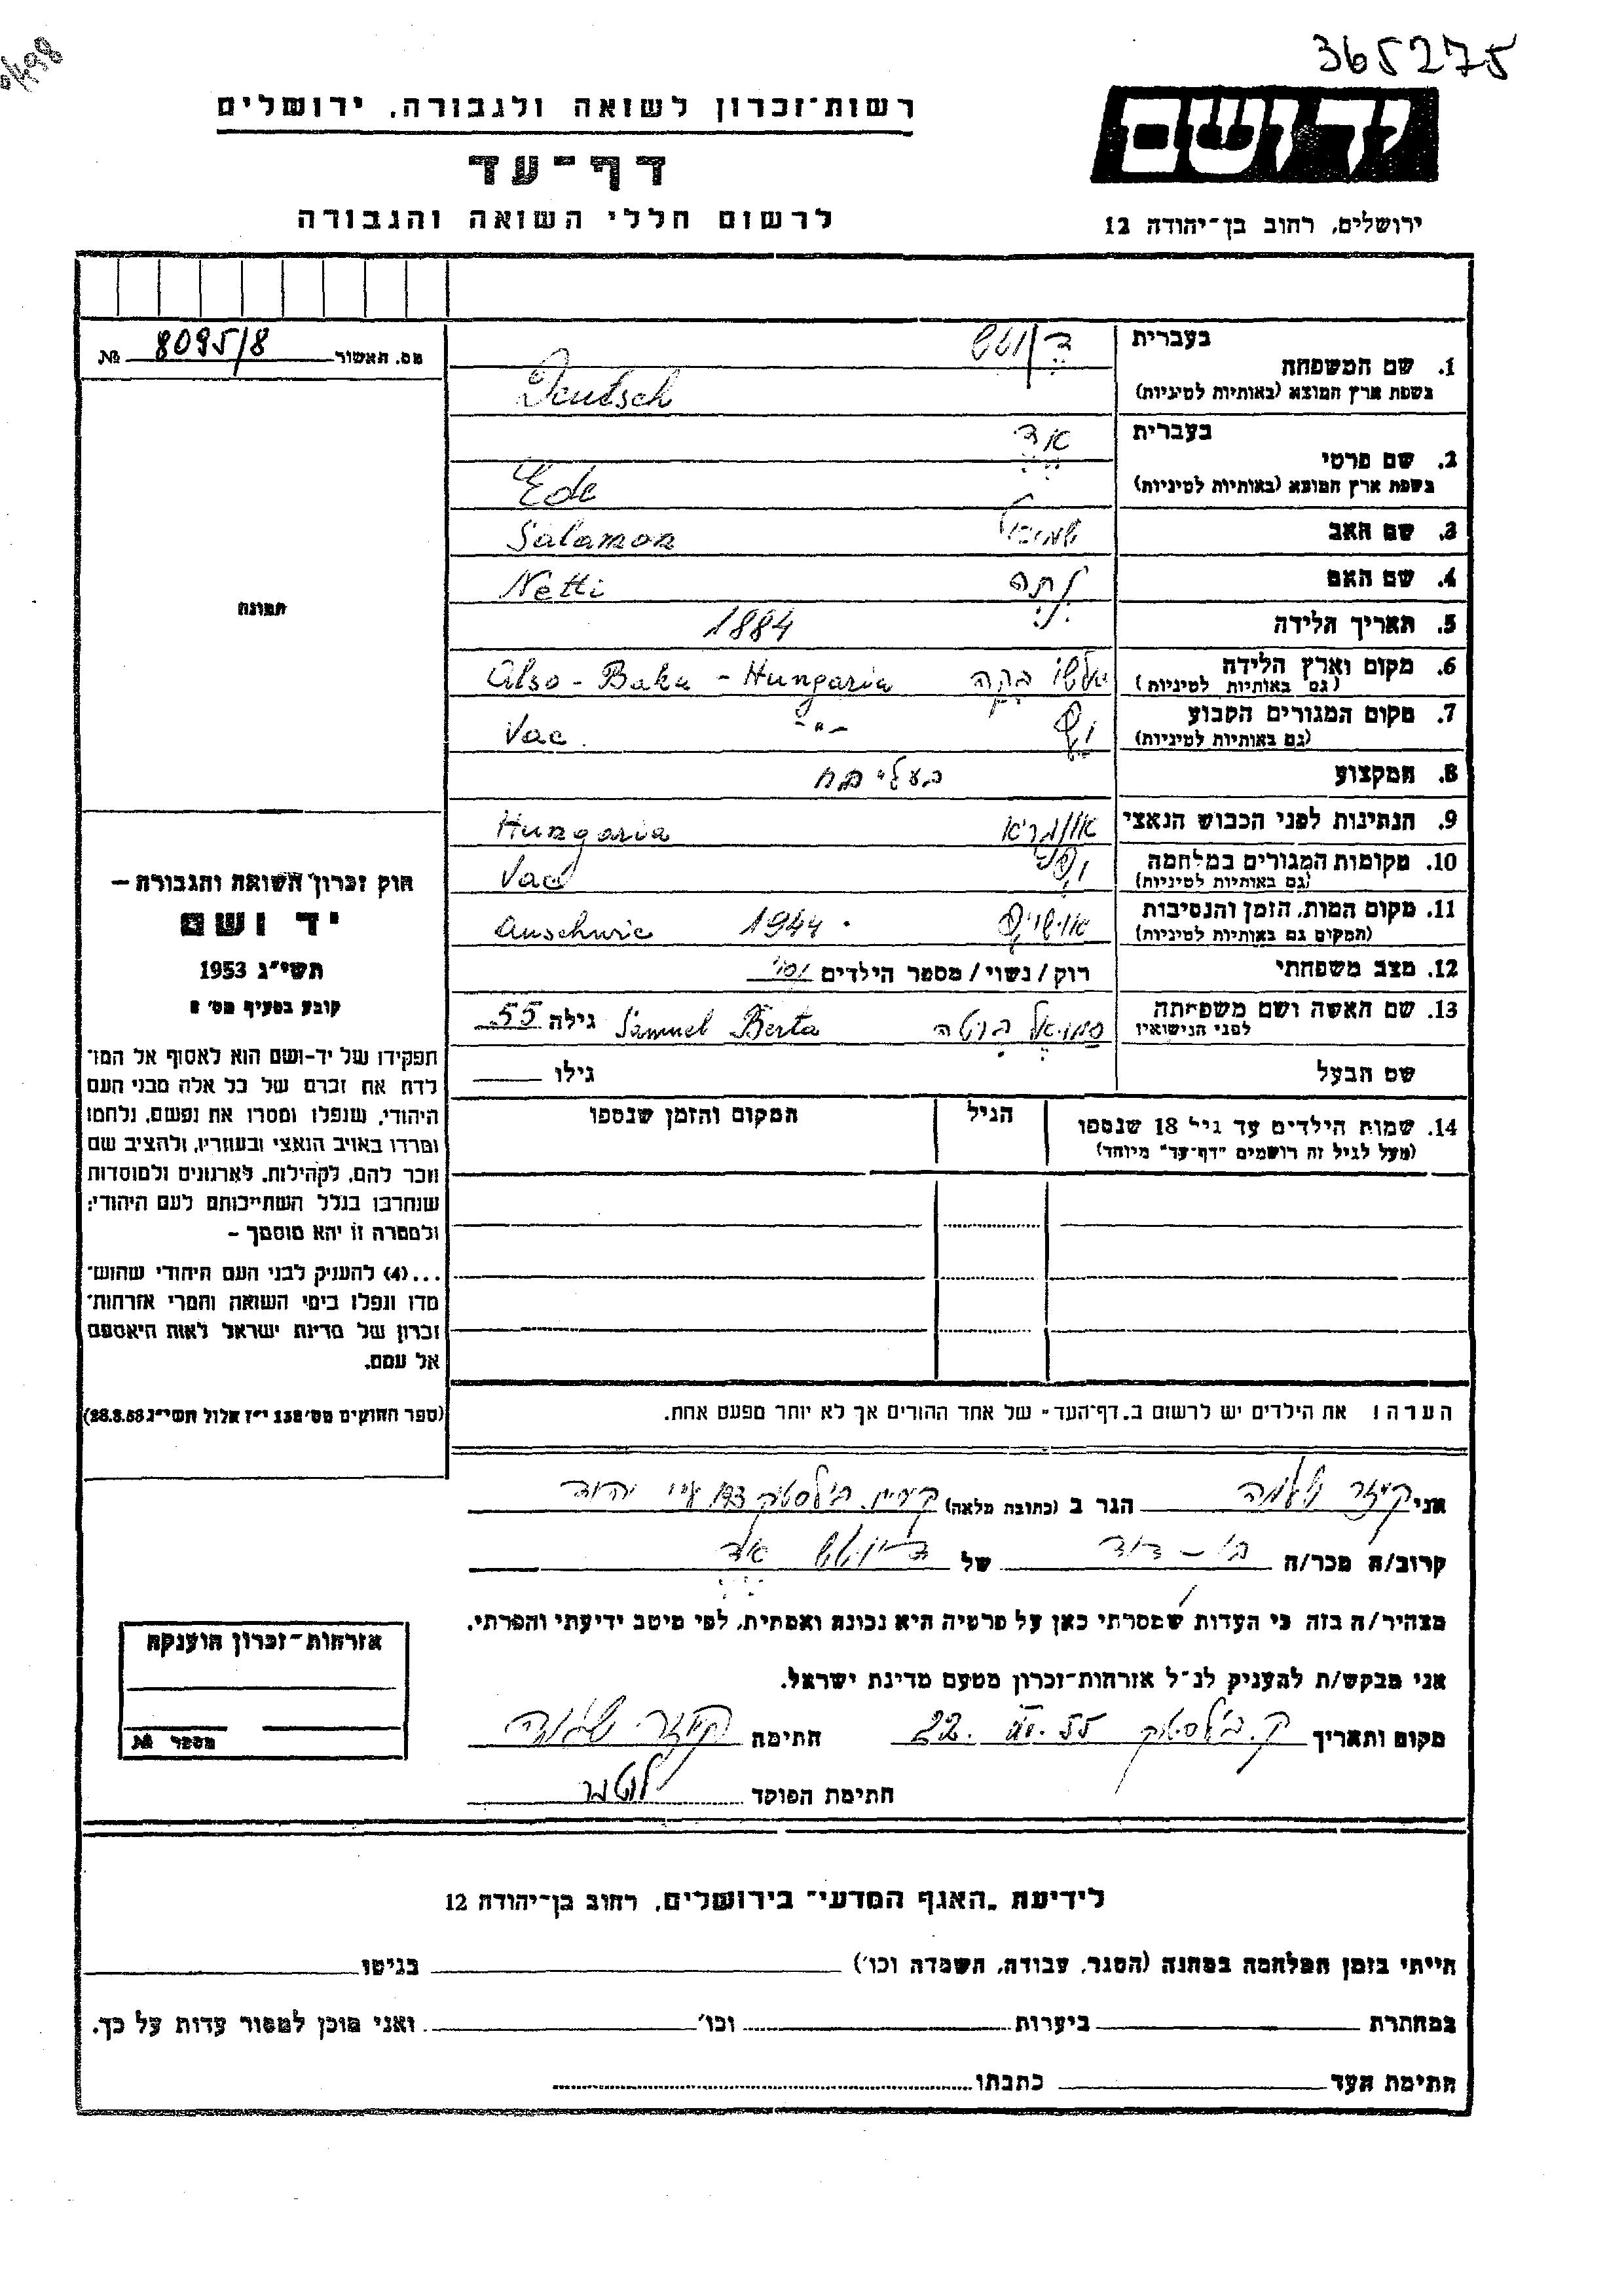 365275
רשות־זכרון לשואה ולגבורה, ירושלים
דף־עד
לרשום חללי השואה והגבורה
יד ושם
ירושלים, רחוב בן־יהודה 12
מס. תאשור 8095/8 №
תמונה
בעברית
1. שם המשפחה
בשפת ארץ המוצא (באותיות לטיניות) Deutsch
בעברית
2. שם פרטי
בשפת ארץ המוצא (באותיות לטיניות) Ede
3. שם האב Salamon
4. שם האם Netti
5. תאריך הלידה 1884
6. מקום וארץ הלידה Also - Baka - Hungaria
(גם באותיות לטיניות)
7. מקום המגורים הקבוע Vac -"-
(גם באותיות לטיניות)
8. המקצוע
9. הנתינות לפני הכבוש הנאצי Hungaria
10. מקומות המגורים במלחמה Vac
(גם באותיות לטיניות)
11. מקום המות, הזמן והנסיבות 1944 Auschwic
(המקום גם באותיות לטיניות)
12. מצב משפחתי רוק / נשוי / מספר הילדים
13. שם האשה ושם משפחתה Samuel Berta גילה 55
לפני הנישואין
שם הבעל גילו
14. שמות הילדים עד גיל 18 שנספו הגיל המקום והזמן שנספו
(מעל לגיל זה רושמים "דף־עד" מיוחד)
הערה: את הילדים יש לרשום ב„דף־העד" של אחד ההורים אך לא יותר מפעם אחת.
חוק זכרון השואה והגבורה –
יד ושם
תשי"ג 1953
קובע בסעיף מס׳ 2
תפקידו של יד-ושם הוא לאסוף אל המו־
לדת את זכרם של כל אלה מבני העם
היהודי, שנפלו ומסרו את נפשם, נלחמו
ומרדו באויב הנאצי ובעוזריו, ולהציב שם
וזכר להם, לקהילות, לארגונים ולמוסדות
שנחרבו בגלל השתייכותם לעם היהודי;
ולמטרה זו יהא מוסמך –
...(4) להעניק לבני העם היהודי שהוש־
מדו ונפלו בימי השואה והמרי אזרחות־
זכרון של מדינת ישראל לאות היאספם
אל עמם.
(ספר החוקים מס׳ 132 י"ז אלול תשי"ג 28.8.53)
אני הגר ב (כתובת מלאה)
קרוב/ה מכר/ה של
מצהיר/ה בזה כי העדות שמסרתי כאן על פרטיה היא נכונה ואמתית, לפי מיטב ידיעתי והכרתי.
אני מבקש/ת להעניק לנ"ל אזרחות־זכרון מטעם מדינת ישראל.
מקום ותאריך 22. 55 חתימה
חתימת הפוקד
אזרחות־זכרון הוענקה
מספר №
לידיעת „האגף המדעי" בירושלים, רחוב בן־יהודה 12
הייתי בזמן המלחמה במחנה (הסגר, עבודה, השמדה וכו׳) בגיטו
במחתרת ביערות וכו׳ ואני מוכן למסור עדות על כך.
חתימת העד כתבתו